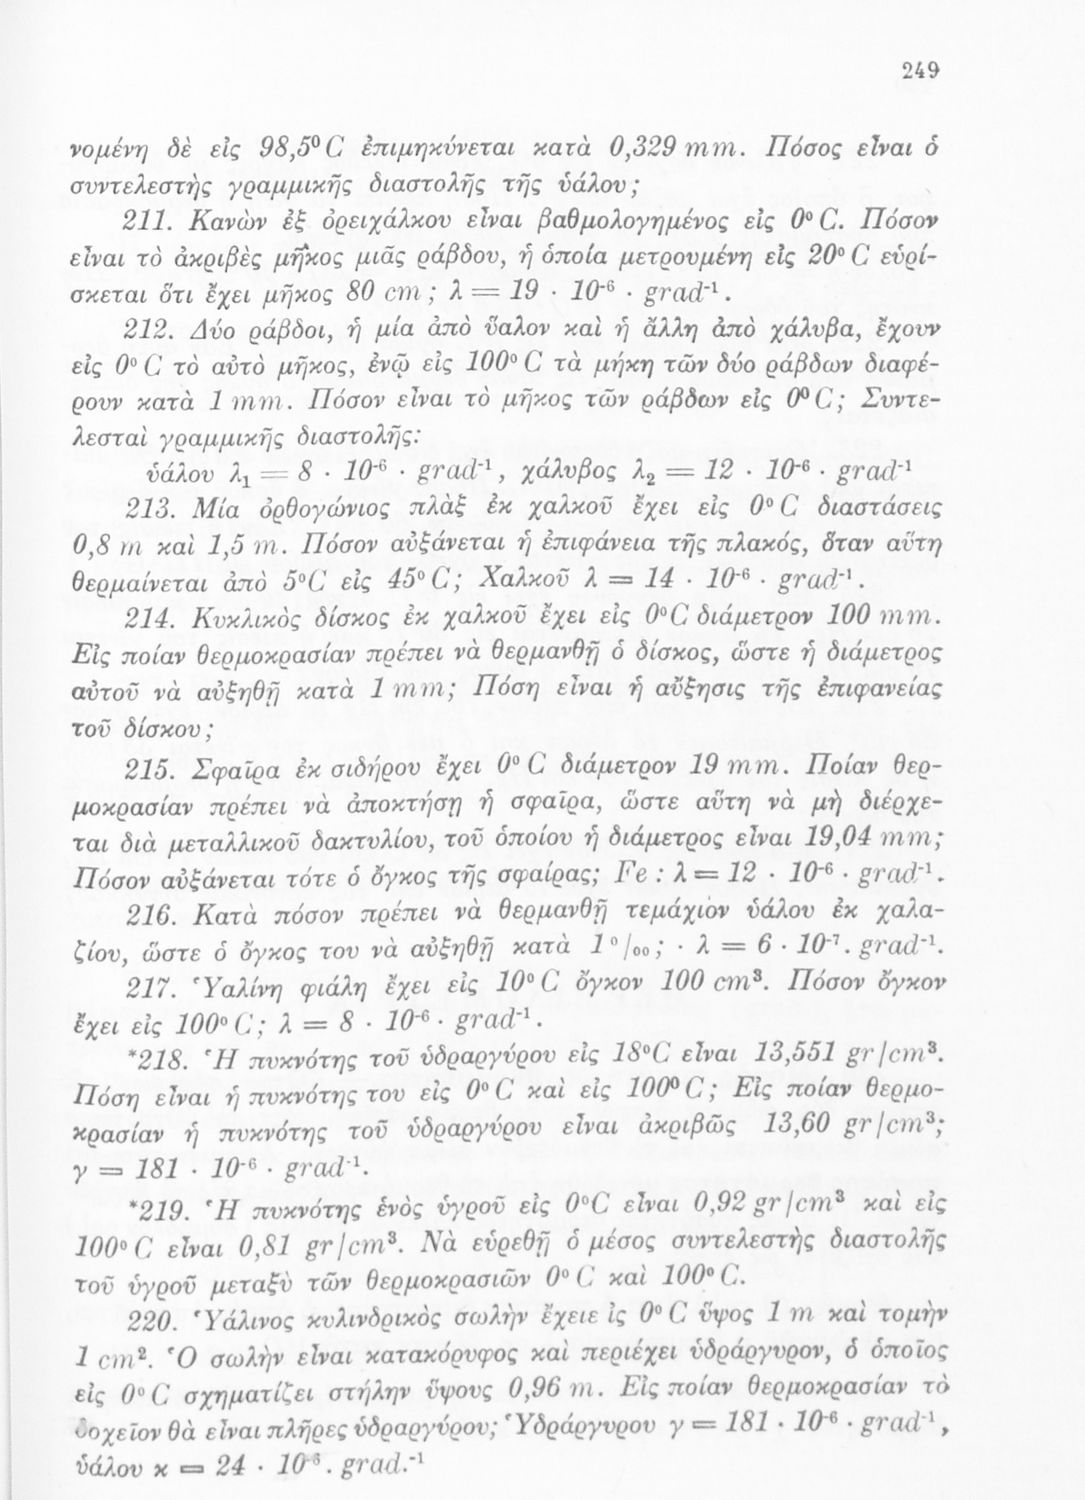 249
νομένη δὲ εἰς 98,5⁰ C ἐπιμηκύνεται κατὰ 0,329 mm. Πόσος εἶναι ὁ
συντελεστὴς γραμμικῆς διαστολῆς τῆς ὑάλου;
211. Κανὼν ἐξ ὀρειχάλκου εἶναι βαθμολογημένος εἰς 0⁰ C. Πόσον
εἶναι τὸ ἀκριβὲς μῆκος μιᾶς ράβδου, ἡ ὁποία μετρουμένη εἰς 20⁰ C εὑρί-
σκεται ὅτι ἔχει μῆκος 80 cm ; λ = 19 · 10⁻⁶ · grad⁻¹.
212. Δύο ράβδοι, ἡ μία ἀπὸ ὕαλον καὶ ἡ ἄλλη ἀπὸ χάλυβα, ἔχουν
εἰς 0⁰ C τὸ αὐτὸ μῆκος, ἐνῷ εἰς 100⁰ C τὰ μήκη τῶν δύο ράβδων διαφέ-
ρουν κατὰ 1 mm. Πόσον εἶναι τὸ μῆκος τῶν ράβδων εἰς 0⁰ C; Συντε-
λεσταὶ γραμμικῆς διαστολῆς:
ὑάλου λ₁ = 8 · 10⁻⁶ · grad⁻¹, χάλυβος λ₂ = 12 · 10⁻⁶ · grad⁻¹
213. Μία ὀρθογώνιος πλὰξ ἐκ χαλκοῦ ἔχει εἰς 0⁰ C διαστάσεις
0,8 m καὶ 1,5 m. Πόσον αὐξάνεται ἡ ἐπιφάνεια τῆς πλακός, ὅταν αὕτη
θερμαίνεται ἀπὸ 5⁰C εἰς 45⁰ C; Χαλκοῦ λ = 14 · 10⁻⁶ · grad⁻¹.
214. Κυκλικὸς δίσκος ἐκ χαλκοῦ ἔχει εἰς 0⁰C διάμετρον 100 mm.
Εἰς ποίαν θερμοκρασίαν πρέπει νὰ θερμανθῇ ὁ δίσκος, ὥστε ἡ διάμετρος
αὐτοῦ νὰ αὐξηθῇ κατὰ 1 mm; Πόση εἶναι ἡ αὔξησις τῆς ἐπιφανείας
τοῦ δίσκου;
215. Σφαῖρα ἐκ σιδήρου ἔχει 0⁰ C διάμετρον 19 mm. Ποίαν θερ-
μοκρασίαν πρέπει νὰ ἀποκτήσῃ ἡ σφαῖρα, ὥστε αὕτη νὰ μὴ διέρχε-
ται διὰ μεταλλικοῦ δακτυλίου, τοῦ ὁποίου ἡ διάμετρος εἶναι 19,04 mm;
Πόσον αὐξάνεται τότε ὁ ὄγκος τῆς σφαίρας; Fe : λ = 12 · 10⁻⁶ · grad⁻¹.
216. Κατὰ πόσον πρέπει νὰ θερμανθῇ τεμάχιον ὑάλου ἐκ χαλα-
ζίου, ὥστε ὁ ὄγκος του νὰ αὐξηθῇ κατὰ 1 ⁰/₀₀; · λ = 6 · 10⁻⁷. grad⁻¹.
217. Ὑαλίνη φιάλη ἔχει εἰς 10⁰ C ὄγκον 100 cm³. Πόσον ὄγκον
ἔχει εἰς 100⁰ C; λ = 8 · 10⁻⁶ · grad⁻¹.
*218. Ἡ πυκνότης τοῦ ὑδραργύρου εἰς 18⁰C εἶναι 13,551 gr/cm³.
Πόση εἶναι ἡ πυκνότης του εἰς 0⁰ C καὶ εἰς 100⁰ C; Εἰς ποίαν θερμο-
κρασίαν ἡ πυκνότης τοῦ ὑδραργύρου εἶναι ἀκριβῶς 13,60 gr/cm³;
γ = 181 · 10⁻⁶ · grad⁻¹.
*219. Ἡ πυκνότης ἑνὸς ὑγροῦ εἰς 0⁰C εἶναι 0,92 gr/cm³ καὶ εἰς
100⁰ C εἶναι 0,81 gr/cm³. Νὰ εὑρεθῇ ὁ μέσος συντελεστὴς διαστολῆς
τοῦ ὑγροῦ μεταξὺ τῶν θερμοκρασιῶν 0⁰ C καὶ 100⁰ C.
220. Ὑάλινος κυλινδρικὸς σωλὴν ἔχειε ἰς 0⁰ C ὕψος 1 m καὶ τομὴν
1 cm². Ὁ σωλὴν εἶναι κατακόρυφος καὶ περιέχει ὑδράργυρον, ὁ ὁποῖος
εἰς 0⁰ C σχηματίζει στήλην ὕψους 0,96 m. Εἰς ποίαν θερμοκρασίαν τὸ
δοχεῖον θὰ εἶναι πλῆρες ὑδραργύρου; Ὑδράργυρου γ = 181 · 10⁻⁶ · grad⁻¹,
ὑάλου κ = 24 · 10⁻⁶. grad.⁻¹